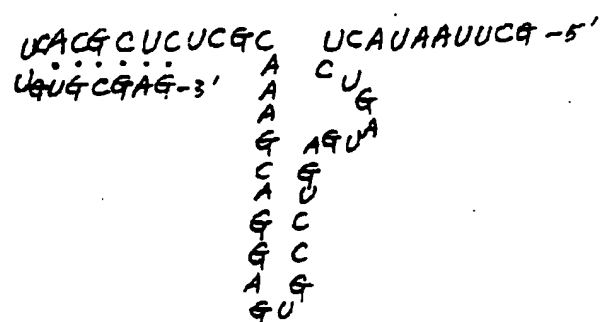 UCACGCUCUCGC UCAUAAUUCG-5'
UGUGCGAG-3' A C U
A G
A A
G AGU
C G
A U
G C
G C
A G
G U